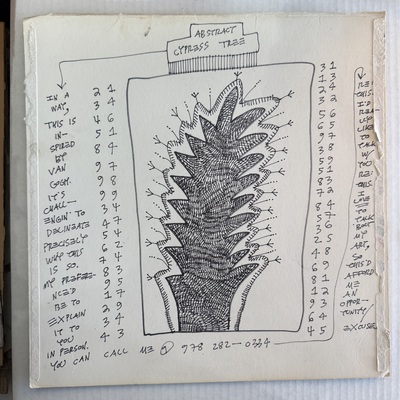 ABSTRACT
CYPRESS TREE
IN A
WAY,
THIS IS
IN-
SPIRED
BY
VAN
GOGH.
IT'S
CHALL-
ENGIN' TO
DELINEATE
PRECISELY
WHY THIS
IS SO.
MY PREFERE-
NCED
BE TO
EXPLAIN
IT TO
YOU
IN PERSON.
YOU CAN CALL ME @ 978 282-0334
2 1
3 4
4 6
5 1
8 4
9 7
9 8
9 9
3 4
4 7
5 4
6 2
7 4
8 3
9 5
1 7
2 9
3 4
4 3
3 1
1 3
2 4
3 2
5 6
6 5
9 7
3 8
5 9
5 1
8 3
7 2
8 4
5 7
3 6
2 5
4 8
6 9
8 1
1 2
9 3
6 4
4 5
RE:
THIS.
I'D
REA-
LLY
LIKE
TO
TALK
W/
YOU
RE:
THIS.
I
LOVE
TO
TALK
'BOUT
MY
ART,
SO
THIS'D
AFFORD
ME
AN
OPPOR-
TUNITY.
EXCUSE